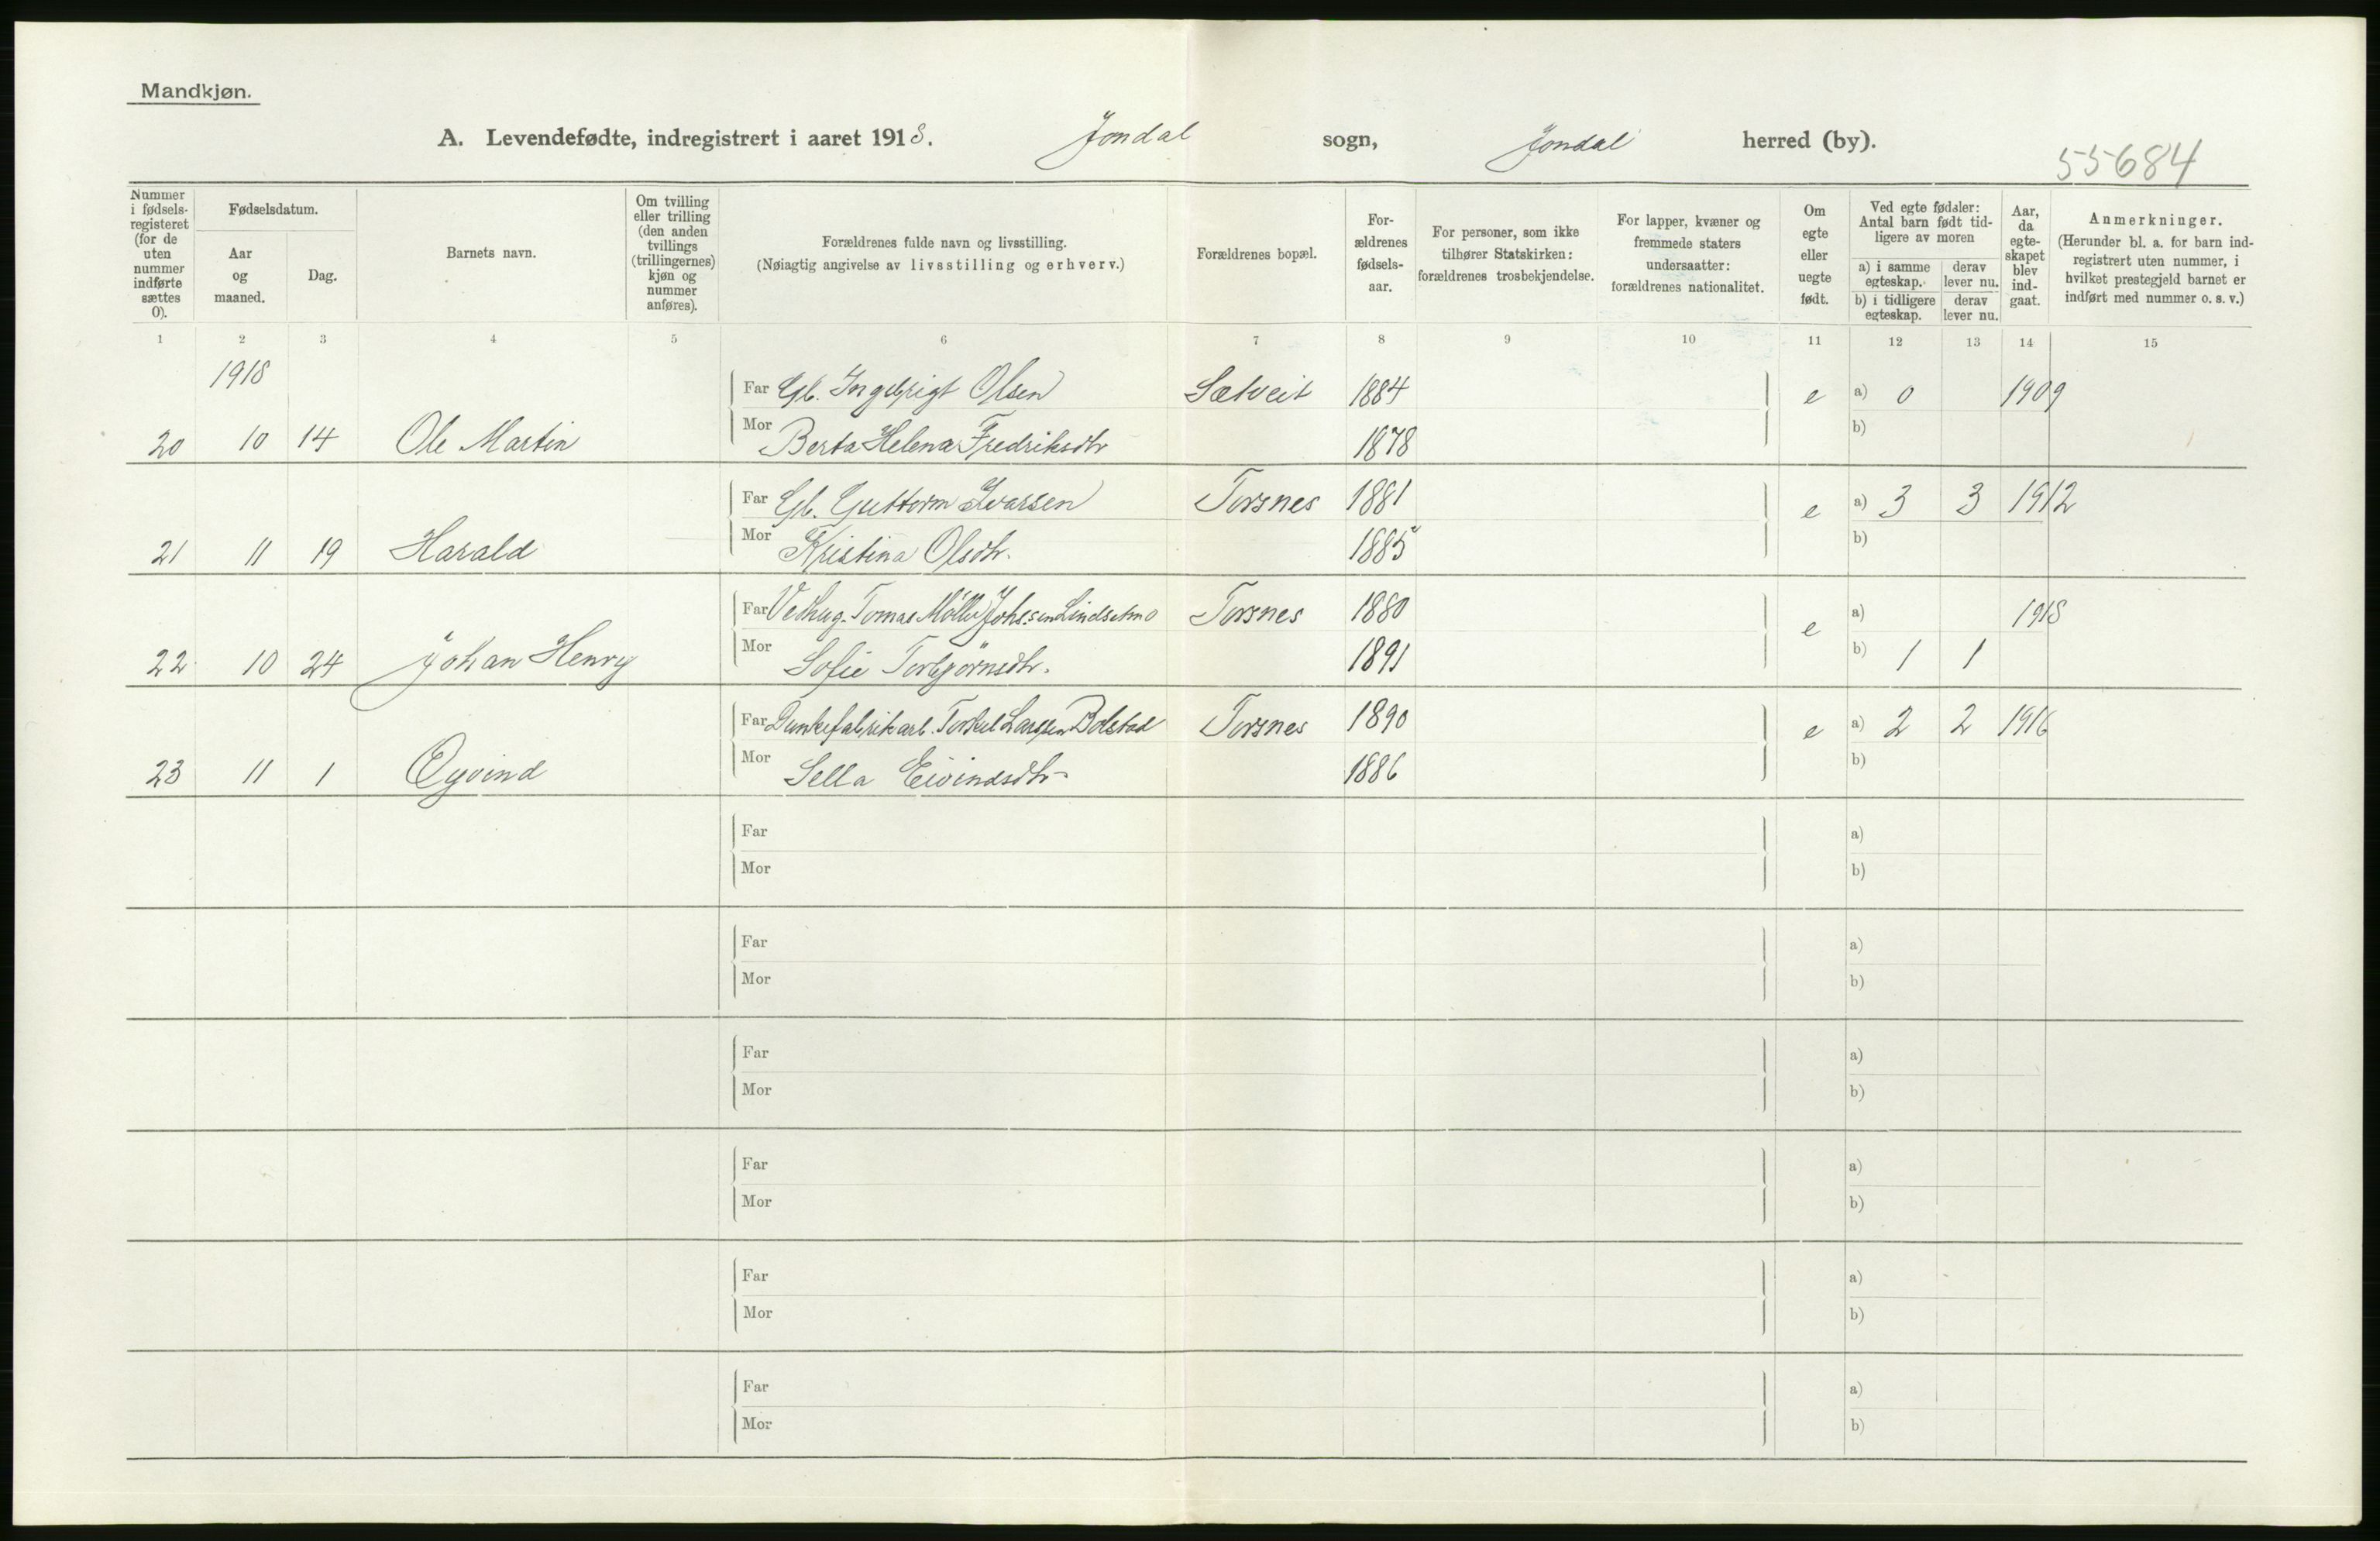 Mandkjøn.
A. Levendefødte, indregistrert i aaret 1918. Jondal sogn, Jondal herred (by).
55684
Nummer i fødsels-registeret (for de uten nummer indførte sættes 0).
Fødselsdatum.
Aar og maaned.
Dag.
Barnets navn.
Om tvilling eller trilling (den anden tvillings (trillingernes) kjøn og nummer anføres).
Forældrenes fulde navn og livsstilling.
(Nøiagtig angivelse av livsstilling og erhverv.)
Forældrenes bopæl.
For-ældrenes fødsels-aar.
For personer, som ikke tilhører Statskirken: forældrenes trosbekjendelse.
For lapper, kvæner og fremmede staters undersaatter: forældrenes nationalitet.
Om egte eller uegte født.
Ved egte fødsler: Antal barn født tid-ligere av moren
a) i samme egteskap. derav lever nu.
b) i tidligere egteskap. derav lever nu.
Aar, da egte-skapet blev ind-gaat.
Anmerkninger.
(Herunder bl. a. for barn ind-registrert uten nummer, i hvilket prestegjeld barnet er indført med nummer o. s. v.)
1 2 3 4 5 6 7 8 9 10 11 12 13 14 15
1918
Far Gb. Ingebrigt Olsen Sætveit 1884 e a) 0 1909
20 10 14 Ole Martin Mor Berta Helena Fredriksdtr 1878 b)
Far Gb. Guttorm Ivarsen Torsnes 1881 e a) 3 3 1912
21 11 19 Harald Mor Kristina Olsdtr. 1885 b)
Far Tomas Møller Johs.sen Lindsetmo Torsnes 1880 e a) 1918
22 10 24 Johan Henry Mor Sofie Torbjörnsdtr. 1891 b) 1 1
Far Torkel Larssen Bolstad Torsnes 1890 e a) 2 2 1916
23 11 1 Øyvind Mor Sella Eivindsdtr 1886 b)
Far a)
Mor b)
Far a)
Mor b)
Far a)
Mor b)
Far a)
Mor b)
Far a)
Mor b)
Far a)
Mor b)